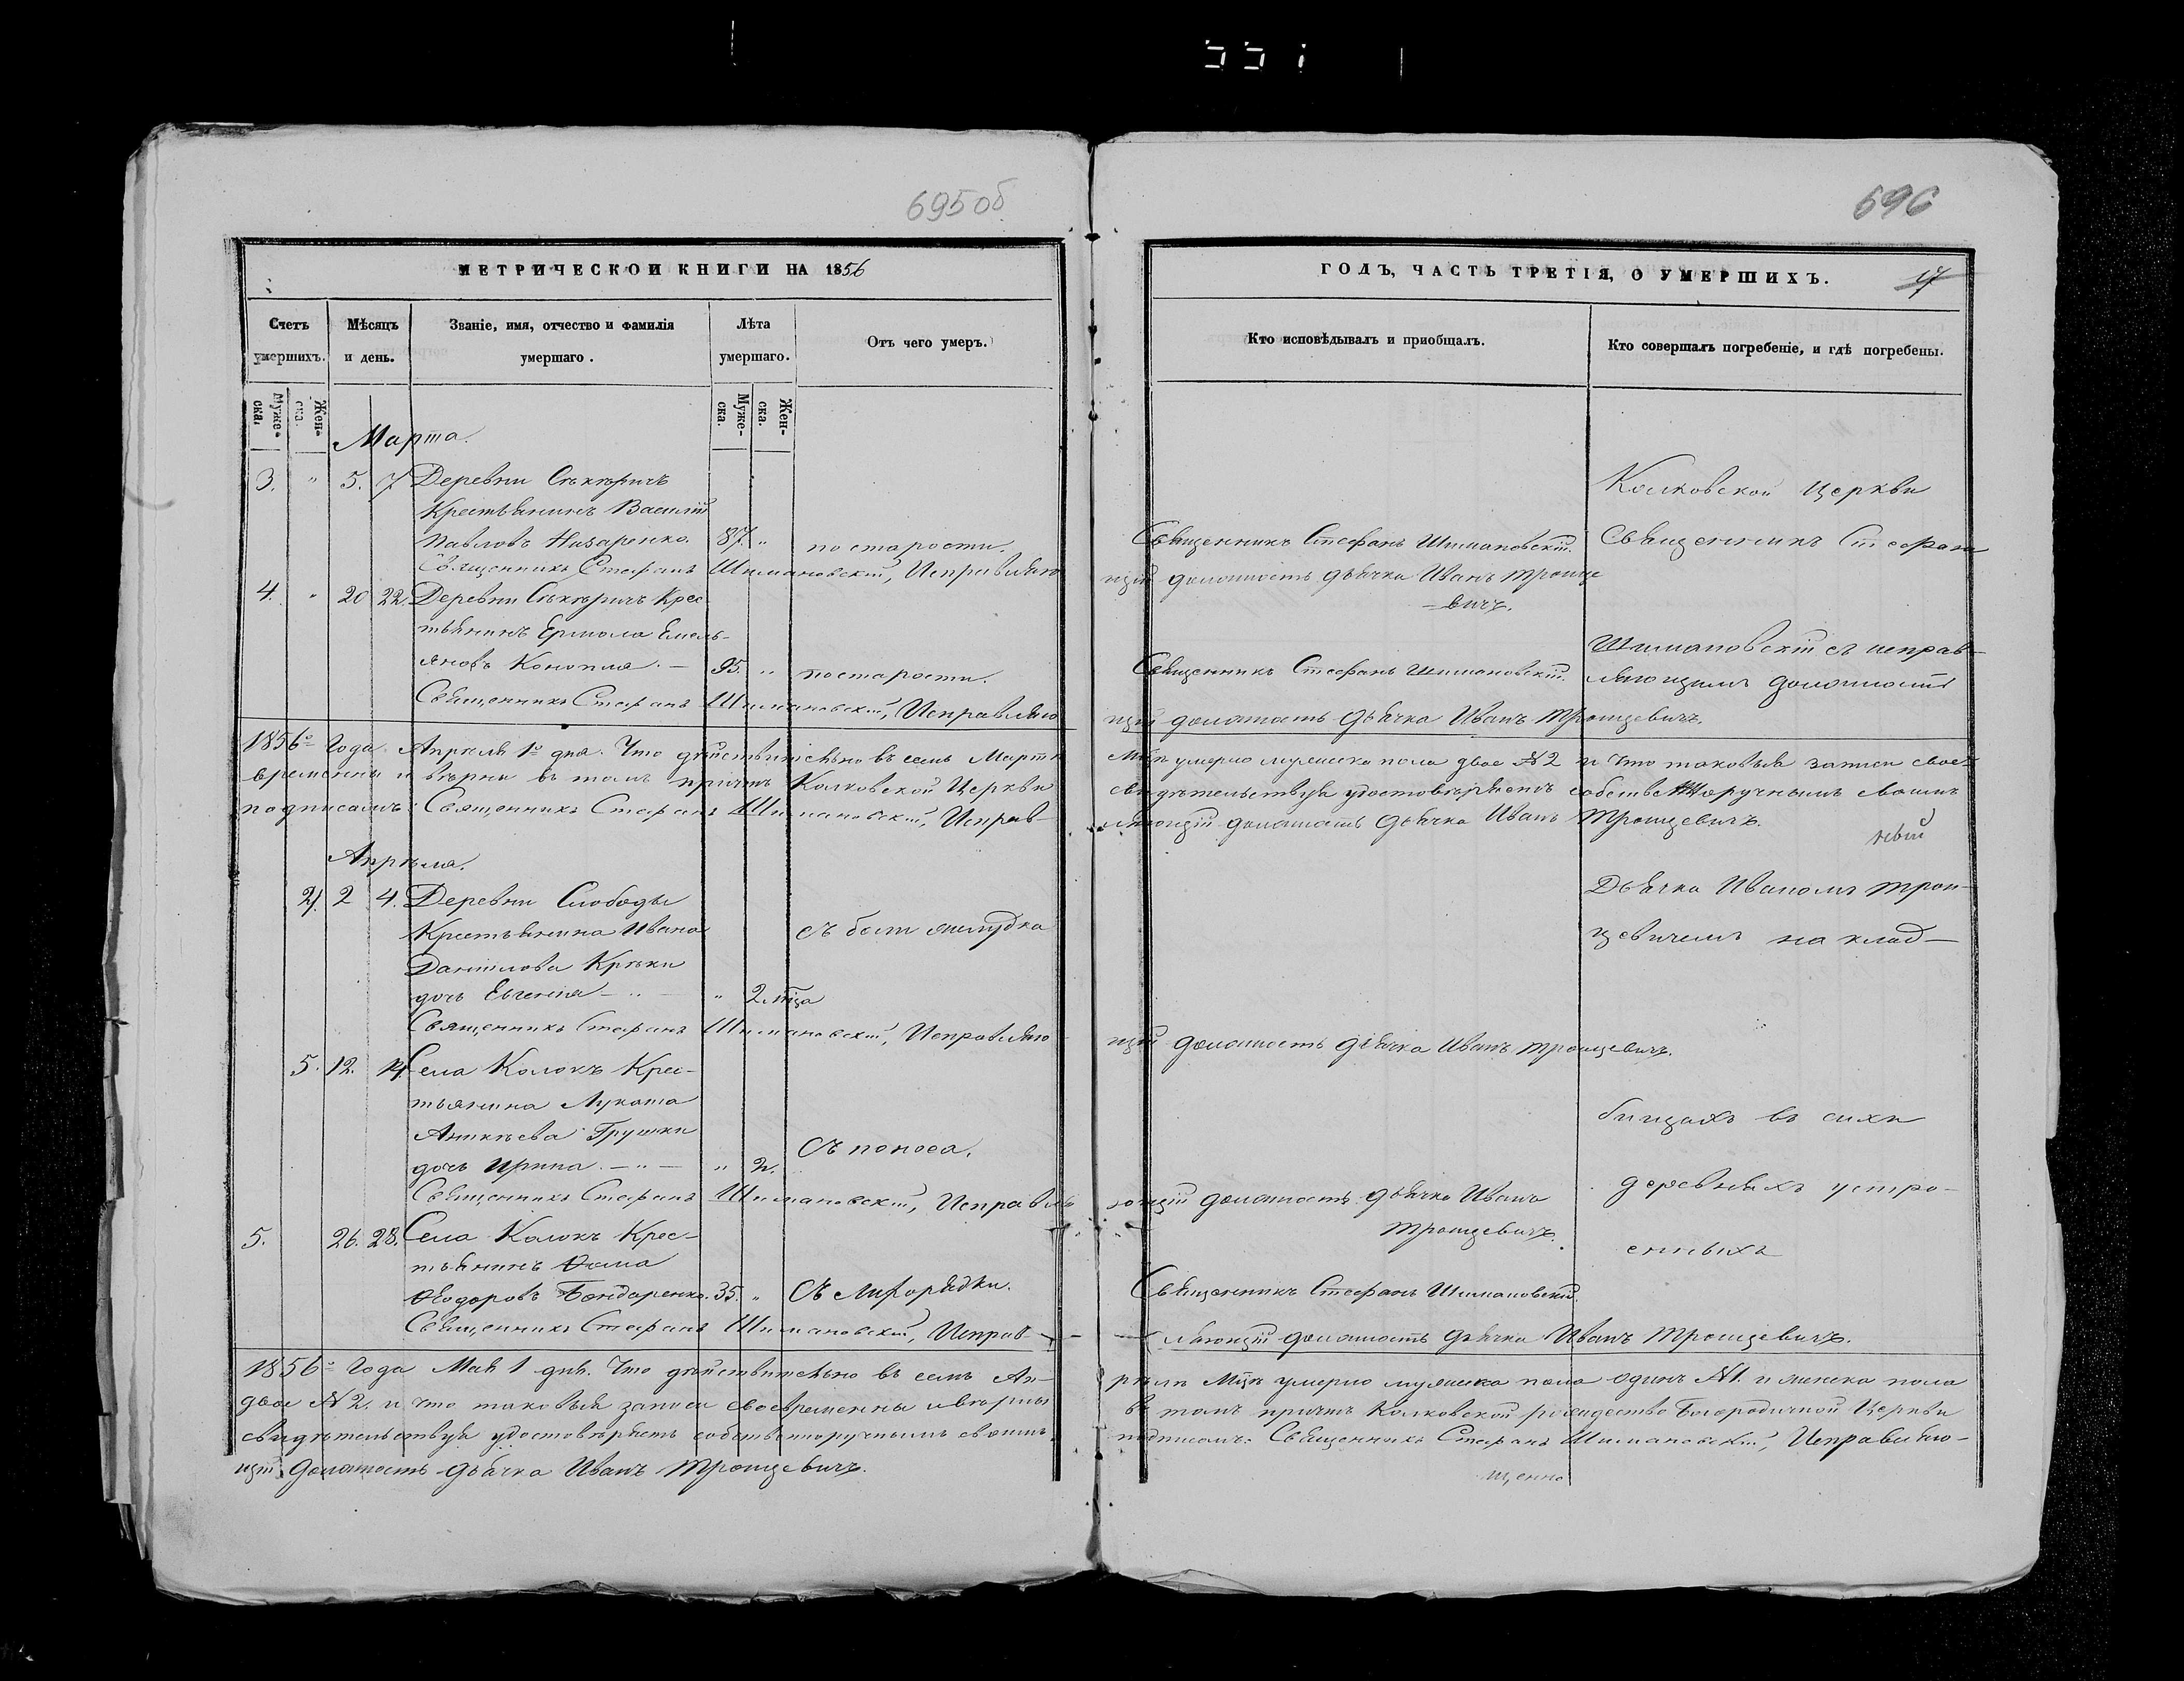 695об
МЕТРИЧЕСКОЙ КНИГИ НА 1856
Счетъ умершихъ.
Мѣсяцъ и день.
Званіе, имя, отчество и фамилія умершаго.
Лѣта умершаго.
Отъ чего умеръ.
Муже-ска.
Жен-ска.
Муже-ска.
Жен-ска.
Марта.
3. " 5. 7 Деревни
Крестьянинъ Василій
Павловъ Назаренко. 87. " по старости.
Священникъ Стефанъ Шимановскій, Исправляю
4. " 20 22. Деревни Крес-
тьянинъ Ермола Емель-
яновъ Конопля. — 95. " по старости.
Священникъ Стефанъ Шимановскій, Исправляю
1856го Года Апрѣля 1го дня. Что дѣйствительно въ семъ Мартѣ
временны и вѣрны въ томъ причтъ Колковской Церкви
подписомъ: Священникъ Стефанъ Шимановскій, Исправ-
Апрѣля.
2 4. Деревни Слободы
Крестьянина Ивана съ боли желудка
Даніилова
дочь Евгенія — " — " 2. мѣца
Священникъ Стефанъ Шимановскій, Исправляю
5. 12. 14. Села Колокъ Крес-
тьянина Лукаша
Аникѣева Грушки Съ поноса.
дочь Ирина. — " — " 2.
Священникъ Стефанъ Шимановскій, Исправля
5. 26. 28. Села Колокъ Крес-
тьянинъ Ѳома
Ѳеодоровъ Бондаренко. 35. " Съ лихорядки.
Священникъ Стефанъ Шимановскій, Исправ-
1856го Года Мая 1 дня. Что дѣйствительно въ семъ Ап-
двое № 2. и что таковыя записи своевременны и вѣрны
свидѣтельствуя удостовѣряетъ собственноручнымъ своимъ
щій должность дьячка Иванъ Троицевичъ.
696
ГОДЪ, ЧАСТЬ ТРЕТІЯ, О УМЕРШИХЪ.
17
Кто исповѣдывалъ и приобщалъ.
Кто совершалъ погребеніе, и гдѣ погребены.
Колковской Церкви
Священникъ Стефанъ Шимановскій. Священникъ Стефанъ
щій должность дьячка Иванъ Троице
—вичъ.
Шимановскій съ исправ-
Священникъ Стефанъ Шимановскій. ляющимъ должность
щій должность дьячка Иванъ Троицевичъ.
Мцѣ умерло мужеска пола двое № 2 и что таковыя записи свое-
свидѣтельствуя удостовѣряетъ собственноручнымъ своимъ
ляющій должность дьячка Иванъ Троицевичъ.
Дьячка Иваномъ Трои-
цевичемъ на клад-
щій должность дьячка Иванъ Троицевичъ.
бищахъ въ сихъ
ющій должность дьячка Иванъ деревняхъ устро-
Троицевичъ. енныхъ
Священникъ Стефанъ Шимановскій.
ляющій должность дьячка Иванъ Троицевичъ.
рѣлѣ Мцѣ умерло мужеска пола одинъ № 1. и женска пола
въ томъ причтъ Колковской рождество Богородичной Церкви
подписомъ: Священникъ Стефанъ Шимановскій, Исправляю-
щенно